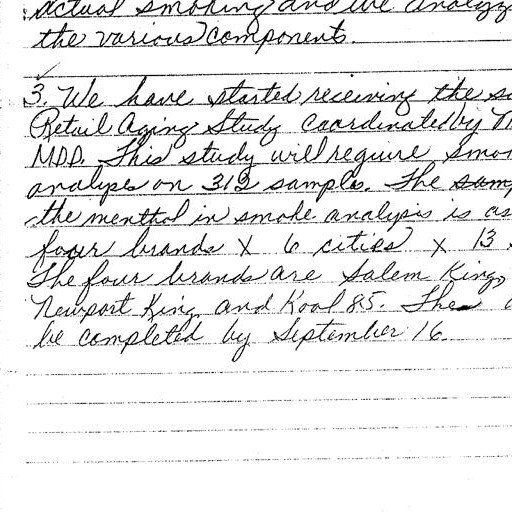 actual smoking and we analyz
the various components.
3. We have started receiving the sa
Retail Aging Study coordinated by
MDD. This study will require smo
analyses on 312 samples. The sam
the menthol in smoke analysis is as
four brands X 6 cities X 13
The four brands are Salem King,
Newport King and Kool 85. The
be completed by September 16.